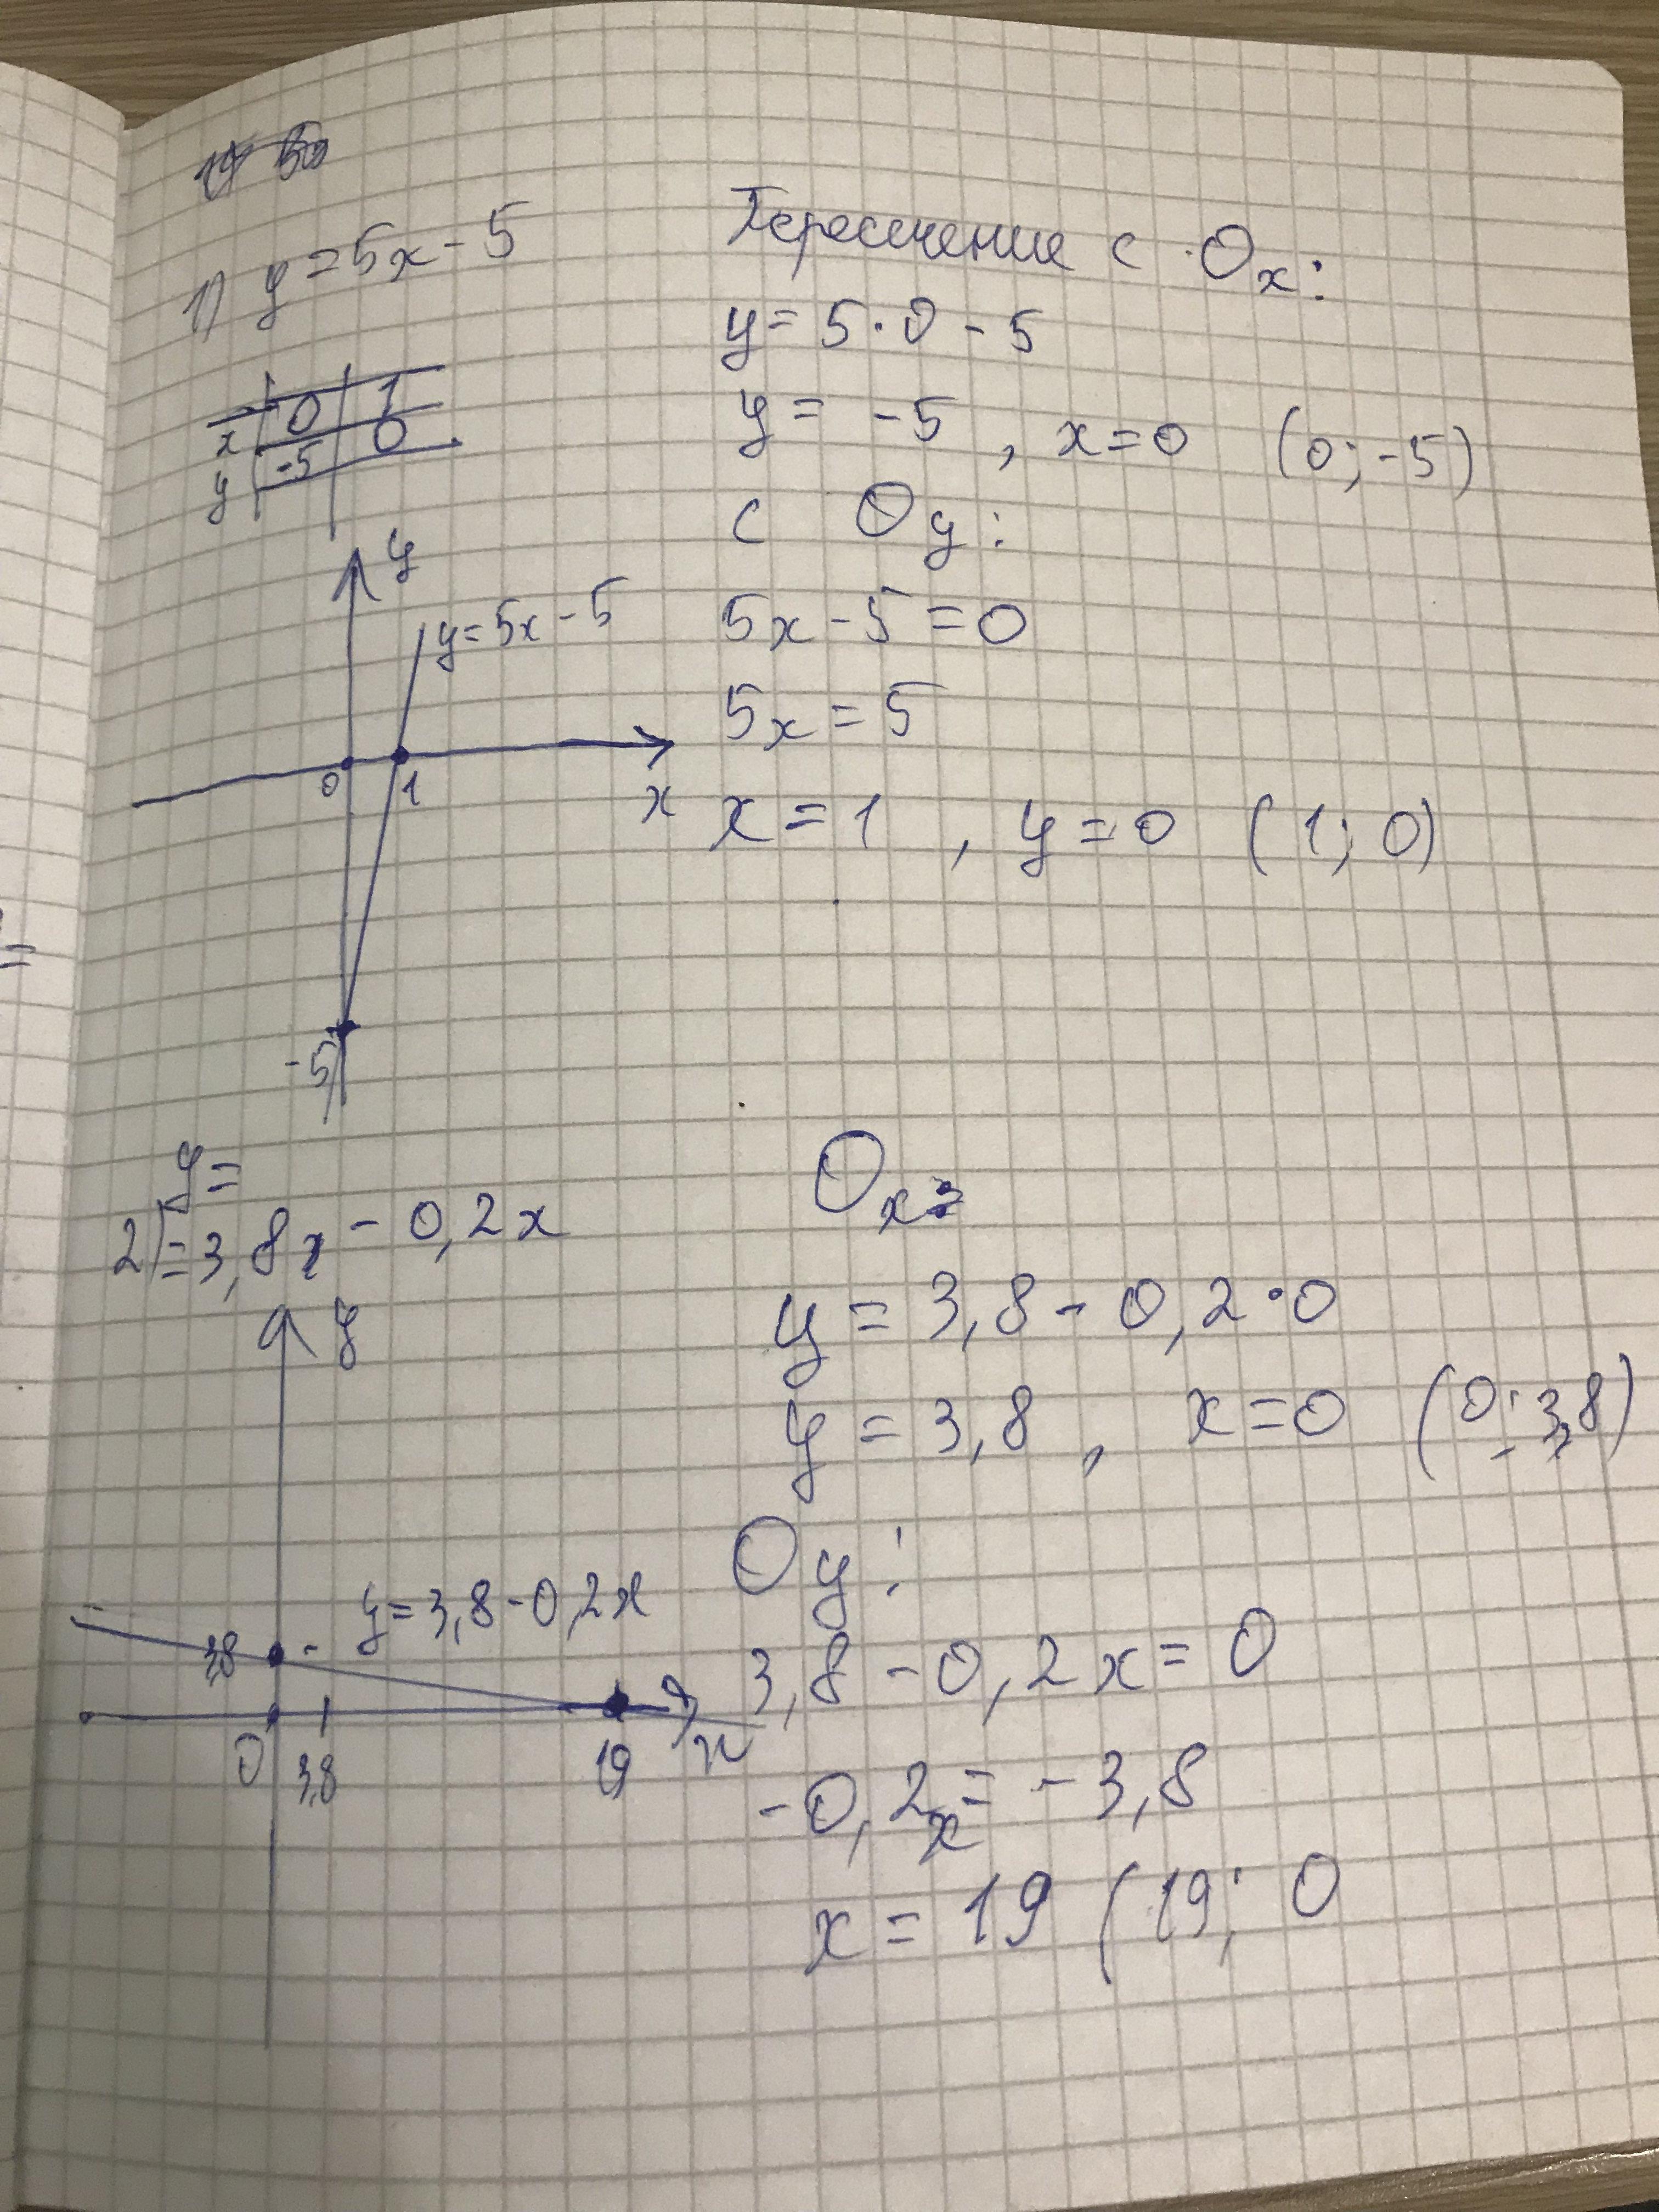 1) y = 5x - 5
x | 0 | 1
y | -5 | 0
y
y = 5x - 5
0 1
x
-5
Пересечение с Ox:
y = 5 · 0 - 5
y = -5 , x = 0 (0; -5)
с Oy:
5x - 5 = 0
5x = 5
x = 1 , y = 0 (1; 0)
y =
2) = 3,8x - 0,2x
y
y = 3,8 - 0,2x
3,8
0 3,8 19 x
Ox:
y = 3,8 - 0,2 · 0
y = 3,8 , x = 0 (0; 3,8)
Oy:
3,8 - 0,2x = 0
-0,2x = -3,8
x = 19 (19; 0
=